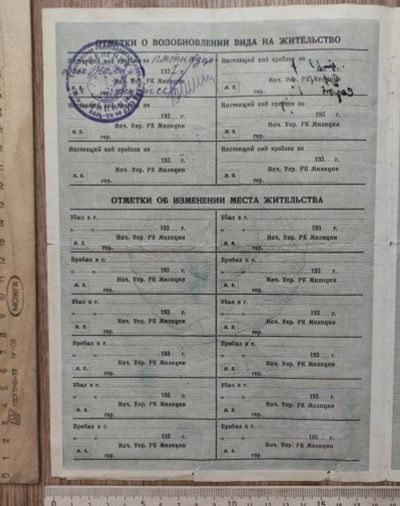 ОТМЕТКИ О ВОЗОБНОВЛЕНИИ ВИДА НА ЖИТЕЛЬСТВО
Настоящий вид продлен по пятнадца Настоящий вид продлен по
193 г. 193 г.
Нач. Упр. РК Милиции Нач. Упр. РК Милиции
гор.
Настоящий вид продлен по Настоящий вид продлен по
193 г. 193 г.
Нач. Упр. РК Милиции Нач. Упр. РК Милиции
М. П. гор. М. П. гор.
Настоящий вид продлен по Настоящий вид продлен по
193 г. 193 г.
Нач. Упр. РК Милиции Нач. Упр. РК Милиции
М. П. гор. М. П. гор.
ОТМЕТКИ ОБ ИЗМЕНЕНИИ МЕСТА ЖИТЕЛЬСТВА
Убыл в г. Убыл в г.
„ „ 193 г. „ „ 193 г.
Нач. Упр. РК Милиции Нач. Упр. РК Милиции
М. П. гор. М. П. гор.
Прибыл в г. Прибыл в г.
„ „ 193 г. „ „ 193 г.
Нач. Упр. РК Милиции Нач. Упр. РК Милиции
М. П. гор. М. П. гор.
Убыл в г. Убыл в г.
„ „ 193 г. „ „ 193 г.
Нач. Упр. РК Милиции Нач. Упр. РК Милиции
М. П. гор. М. П. гор.
Прибыл в г. Прибыл в г.
„ „ 193 г. „ „ 193 г.
Нач. Упр. РК Милиции Нач. Упр. РК Милиции
М. П. гор. М. П. гор.
Убыл в г. Убыл в г.
„ „ 193 г. „ „ 193 г.
Нач. Упр. РК Милиции Нач. Упр. РК Милиции
М. П. гор. М. П. гор.
Прибыл в г. Прибыл в г.
„ „ 193 г. „ „ 193 г.
Нач. Упр. РК Милиции Нач. Упр. РК Милиции
М. П. гор. М. П. гор.
0 1 2 3 4 5 6 7 8 9 10 11 12 13 14
0 5 10 15